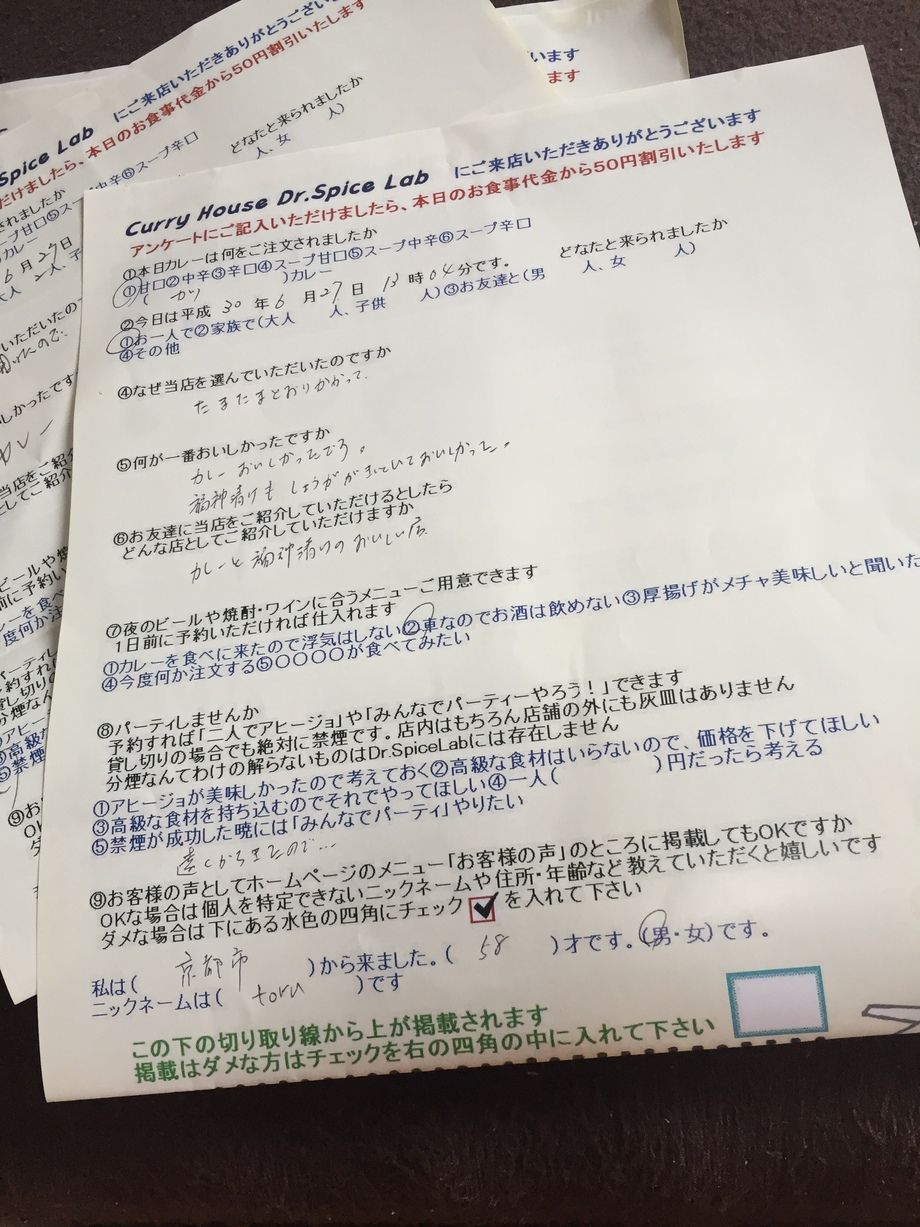 Curry House Dr.Spice Lab にご来店いただきありがとうございます
アンケートにご記入いただけましたら、本日のお食事代金から50円割引いたします
①本日カレーは何をご注文されましたか
①甘口②中辛③辛口④スープ甘口⑤スープ中辛⑥スープ辛口
( カツ )カレー
どなたと来られましたか
②今日は平成 30 年 6 月 27 日 13 時 04 分です。
①お一人で②家族で(大人 人、子供 人)③お友達と(男 人、女 人)
④その他
④なぜ当店を選んでいただいたのですか
たまたまとおりかかって
⑤何が一番おいしかったですか
カレーおいしかったです。
福神漬けもしょうががきいていておいしかった。
⑥お友達に当店をご紹介していただけるとしたら
どんな店としてご紹介していただけますか
カレーと福神漬けのおいしい店
⑦夜のビールや焼酎・ワインに合うメニューご用意できます
1日前に予約いただければ仕入れます
①カレーを食べに来たので浮気はしない②車なのでお酒は飲めない③厚揚げがメチャ美味しいと聞いた
④今度何か注文する⑤〇〇〇〇が食べてみたい
⑧パーティしませんか
予約すれば「二人でアヒージョ」や「みんなでパーティーやろう!」できます
貸し切りの場合でも絶対に禁煙です。店内はもちろん店舗の外にも灰皿はありません
分煙なんてわけの解らないものはDr.SpiceLabには存在しません
①アヒージョが美味しかったので考えておく②高級な食材はいらないので、価格を下げてほしい
③高級な食材を持ち込むのでそれでやってほしい④一人( )円だったら考える
⑤禁煙が成功した暁には「みんなでパーティ」やりたい
遠くからきたので…
⑨お客様の声としてホームページのメニュー「お客様の声」のところに掲載してもOKですか
OKな場合は個人を特定できないニックネームや住所・年齢など教えていただくと嬉しいです
ダメな場合は下にある水色の四角にチェック を入れて下さい
私は( 京都市 )から来ました。( 58 )才です。(男・女)です。
ニックネームは( toru )です
この下の切り取り線から上が掲載されます
掲載はダメな方はチェックを右の四角の中に入れて下さい